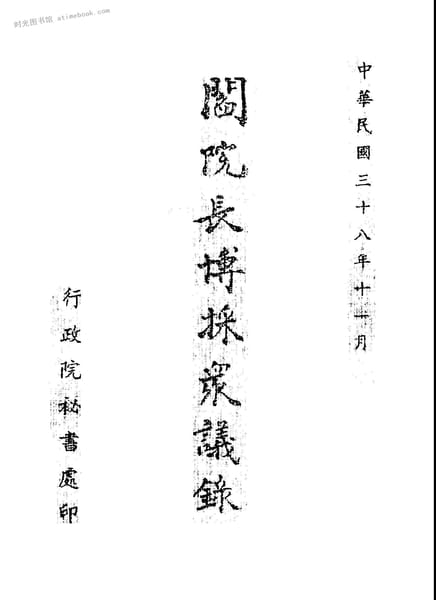 时光图书馆 atimebook.com
中華民國三十八年十一月
閻院長博採眾議錄
行政院祕書處印